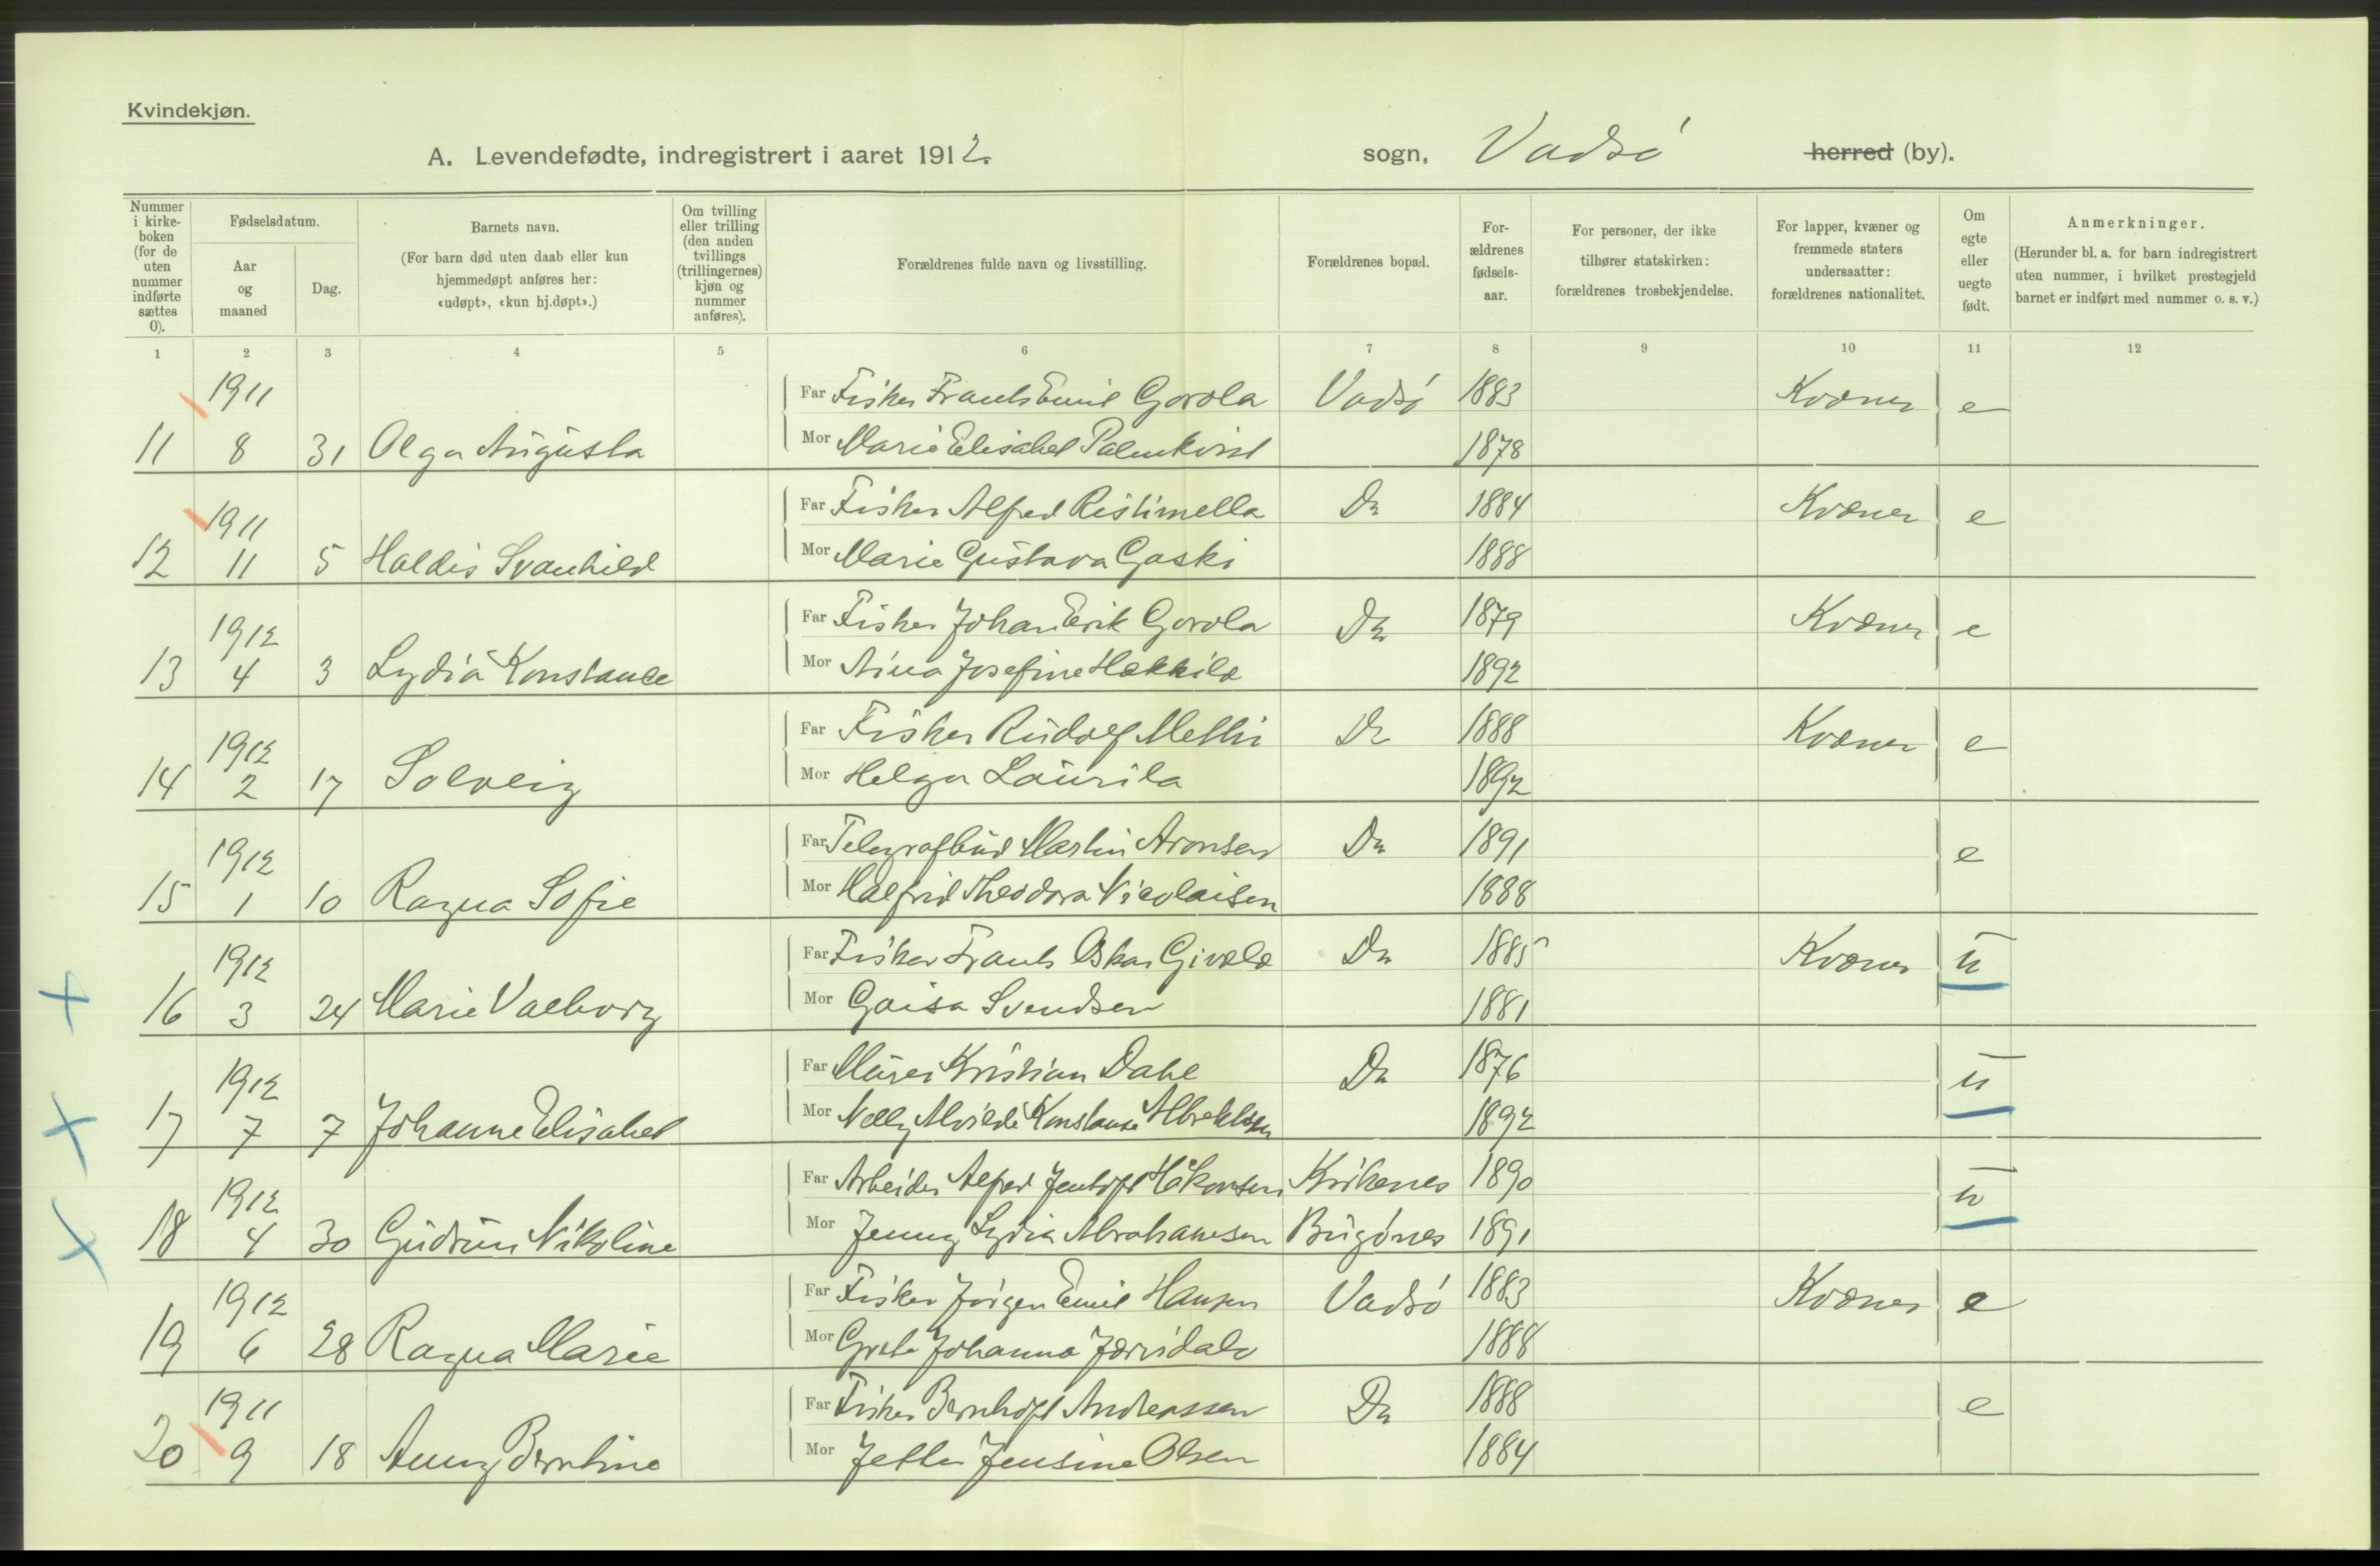 Kvindekjøn.
A. Levendefødte, indregistrert i aaret 1912.
sogn, Vadsö herred (by).
Nummer i kirkeboken (for de uten nummer indførte sættes 0).
Fødselsdatum.
Aar og maaned
Dag.
Barnets navn.
(For barn død uten daab eller kun hjemmedøpt anføres her: «udøpt», «kun hj.døpt».)
Om tvilling eller trilling (den anden tvillings (trillingernes) kjøn og nummer anføres).
Forældrenes fulde navn og livsstilling.
Forældrenes bopæl.
Forældrenes fødselsaar.
For personer, der ikke tilhører statskirken: forældrenes trosbekjendelse.
For lapper, kvæner og fremmede staters undersaatter: forældrenes nationalitet.
Om egte eller uegte født.
Anmerkninger.
(Herunder bl. a. for barn indregistrert uten nummer, i hvilket prestegjeld barnet er indført med nummer o. s. v.)
1 2 3 4 5 6 7 8 9 10 11 12
1911 Far Fisker Frants Emil Gorola Vadsö 1883 Kvæner e
11 8 31 Olga Augusta Mor Marie Elisabet Palmkvist 1878
1911 Far Fisker Alfred Ristimella Do 1884 Kvæner e
12 11 5 Haldis Svanhild Mor Marie Gustava Gaski 1888
1912 Far Fisker Johan Erik Gorola Do 1879 Kvæner e
13 4 3 Lydia Konstance Mor Aina Josefine Hækkilæ 1892
1912 Far Fisker Rudolf Methi Do 1888 Kvæner e
14 2 17 Solveig Mor Helga Laurila 1892
1912 Far Telegrafbud Martin Aronsen Do 1891 e
15 1 10 Ragna Sofie Mor Halfrid Theodora Nicolaisen 1888
1912 Far Fisker Frants Oskar Givælæ Do 1885 Kvæner u
16 3 24 Marie Valborg Mor Gaisa Svendsen 1881
1912 Far Murer Kristian Dahl Do 1876 u
17 7 7 Johanne Elisabet Mor Nelly Alvilde Konstanse Albrektsen 1892
1912 Far Arbeider Alfred Jentoft Håkonsen Kirkenes 1890 u
18 4 30 Gudrun Nikoline Mor Jenny Lydia Abrahamsen Bugönes 1891
1912 Far Fisker Jörgen Emil Hansen Vadsö 1883 Kvæner e
19 6 28 Ragna Marie Mor Grete Johanna 1888
1911 Far Fisker Bernhoft Andreassen Do 1888 e
20 9 18 Anny Berntine Mor Jette Jensine Olsen 1884